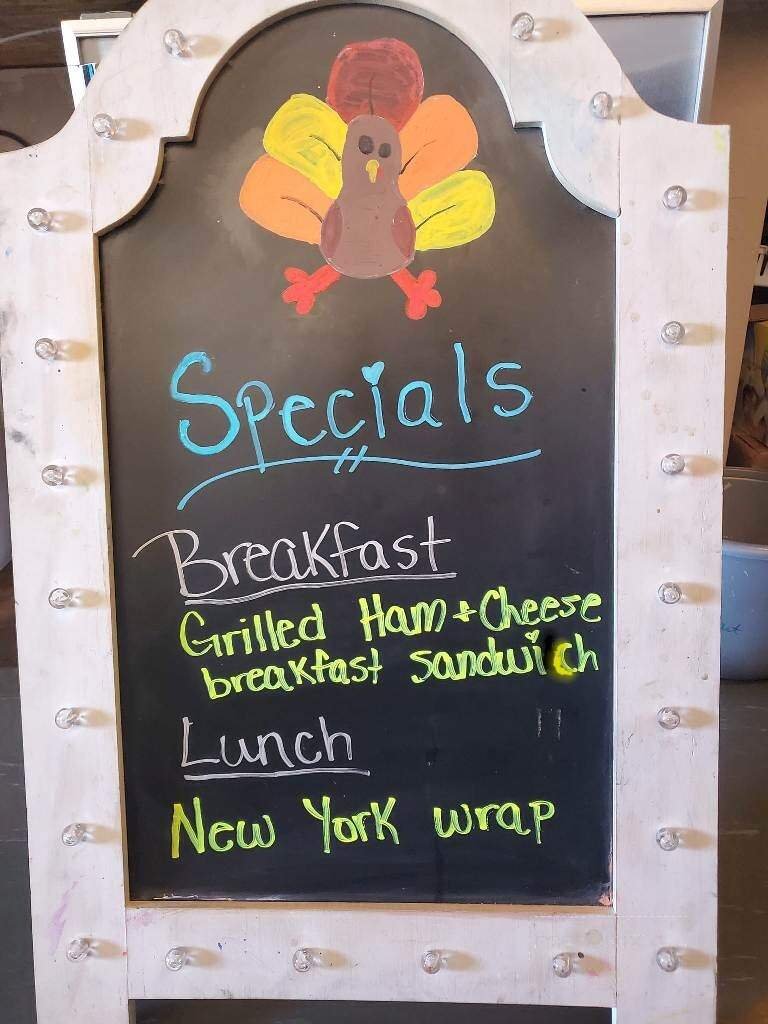 Specials
Breakfast
Grilled Ham + Cheese
breakfast sandwich
Lunch
New York wrap